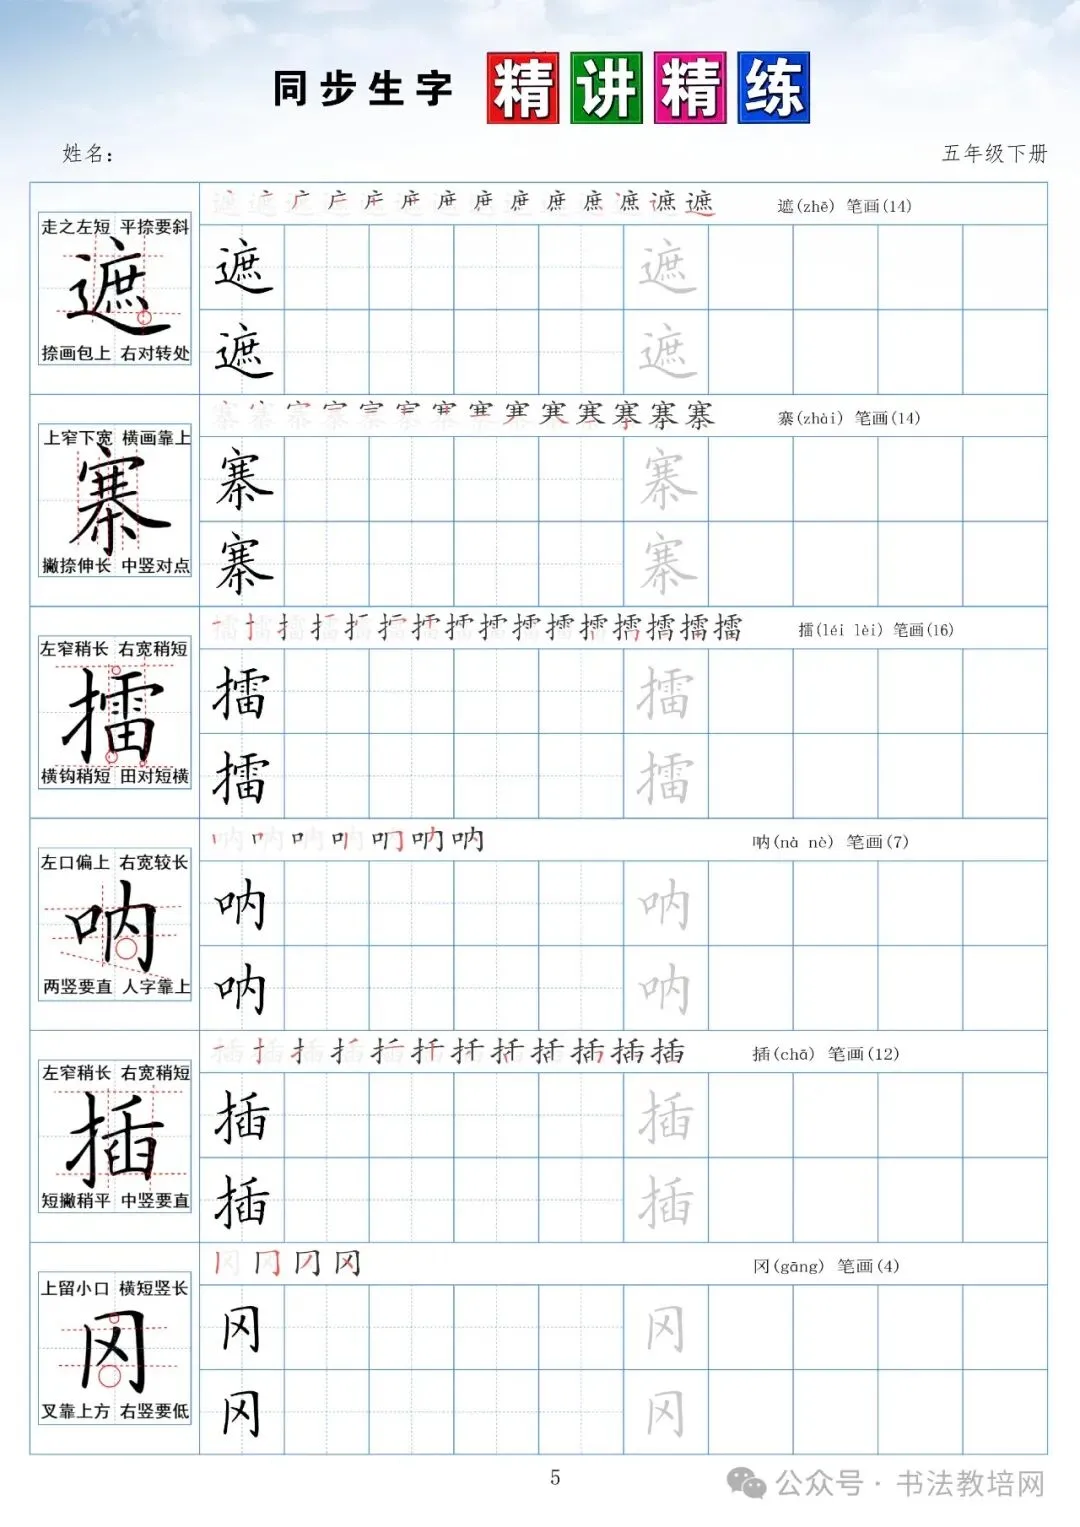 同步生字 精讲精练
姓名：
五年级下册
遮(zhē) 笔画(14)
走之左短 平捺要斜
遮
捺画包上 右对转处
遮 遮
遮 遮
寨(zhài) 笔画(14)
上窄下宽 横画靠上
寨
撇捺伸长 中竖对点
寨 寨
寨 寨
擂(léi lèi) 笔画(16)
左窄稍长 右宽稍短
擂
横钩稍短 田对短横
擂 擂
擂 擂
呐(nà nè) 笔画(7)
左口偏上 右宽较长
呐
两竖要直 人字靠上
呐 呐
呐 呐
插(chā) 笔画(12)
左窄稍长 右宽稍短
插
短撇稍平 中竖要直
插 插
插 插
冈(gāng) 笔画(4)
上留小口 横短竖长
冈
叉靠上方 右竖要低
冈 冈
冈 冈
5
公众号·书法教培网